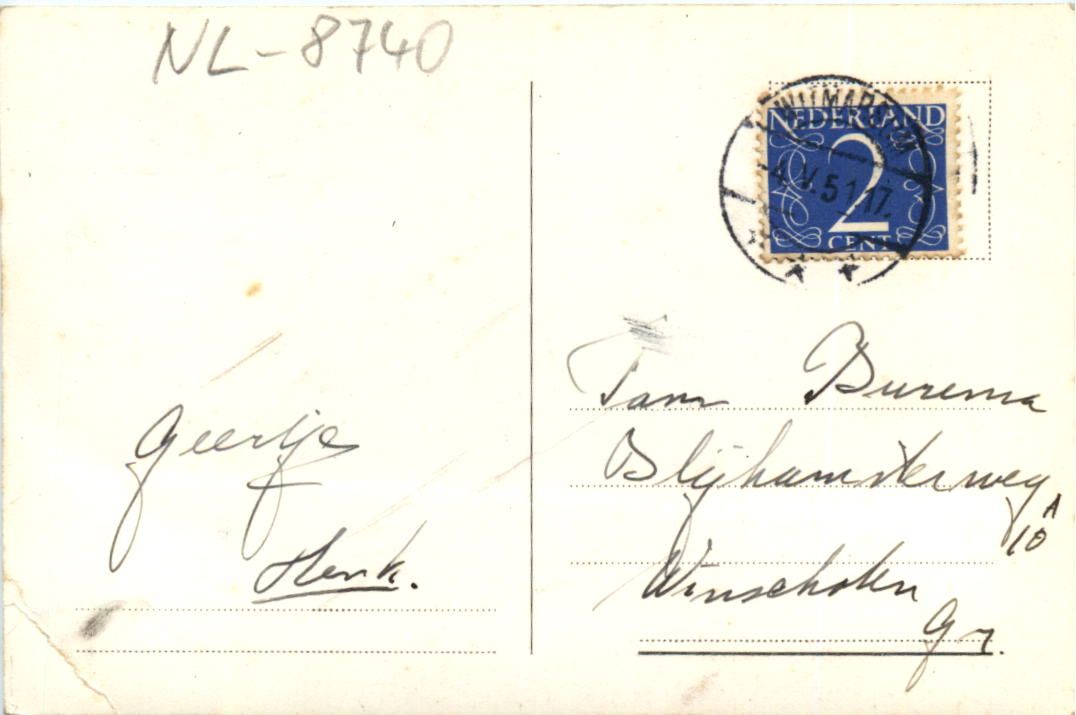 NL-8740
NEDERLAND
2
CENT
-4.V.51.17.
Geertje
Henk.
Fam Burema
Blijhamsterweg
A
10
Winschoten
Gr.